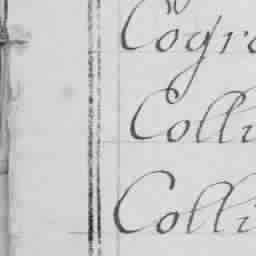 Cogr
Colli
Colli